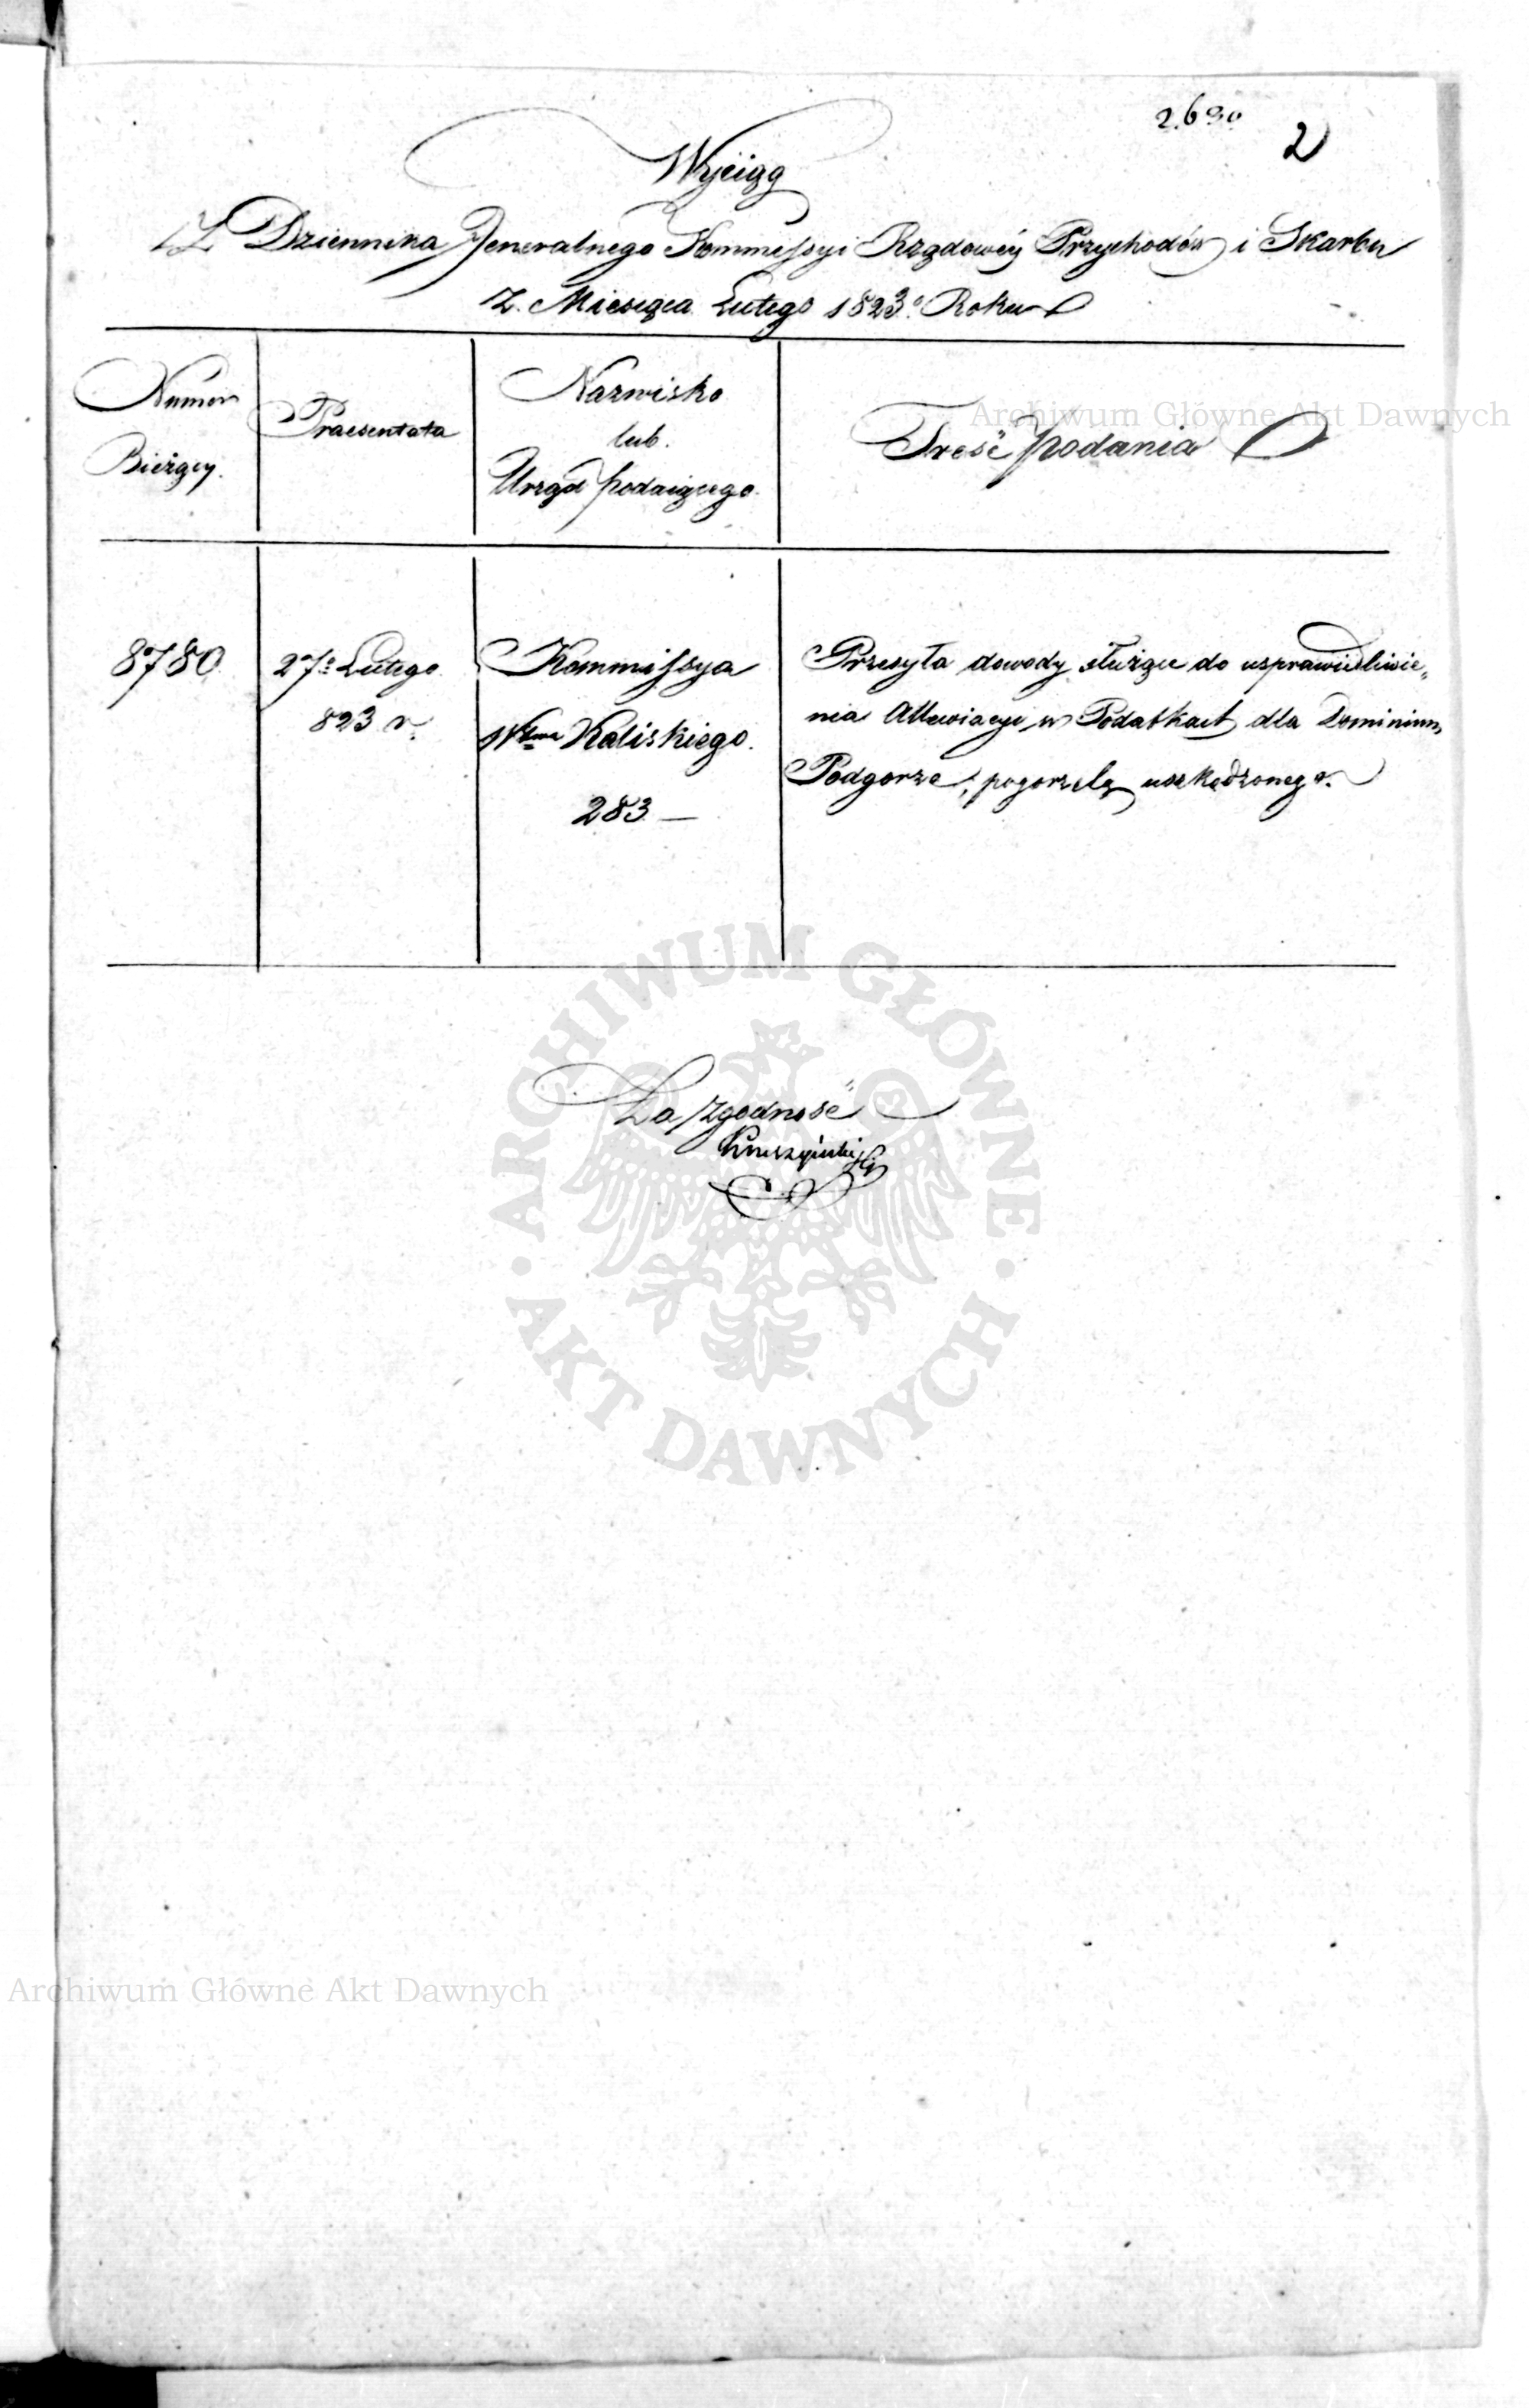 2
Wyciąg
Z Dziennika Jeneralnego Kommissyi Rządowéy Przychodów i Skarbu
Z. Miesiąca Lutego 1823º Roku
Numer
Bieżący.
Praesentata
Nazwisko
lub.
Urząd podaiącego.
Treść podania
8780.
27º Lutego
823 r.
Kommissya
Wztwa Kaliskiego.
283 —
Przesyła dowody służące do usprawiedliwie„
nia Allewiacyi w Podatkach dla Dominium
Podgorze, pogorzelą uszkodzonego.
Za zgodność
Archiwum Główne Akt Dawnych
ARCHIWUM GŁÓWNE
AKT DAWNYCH
Archiwum Główne Akt Dawnych